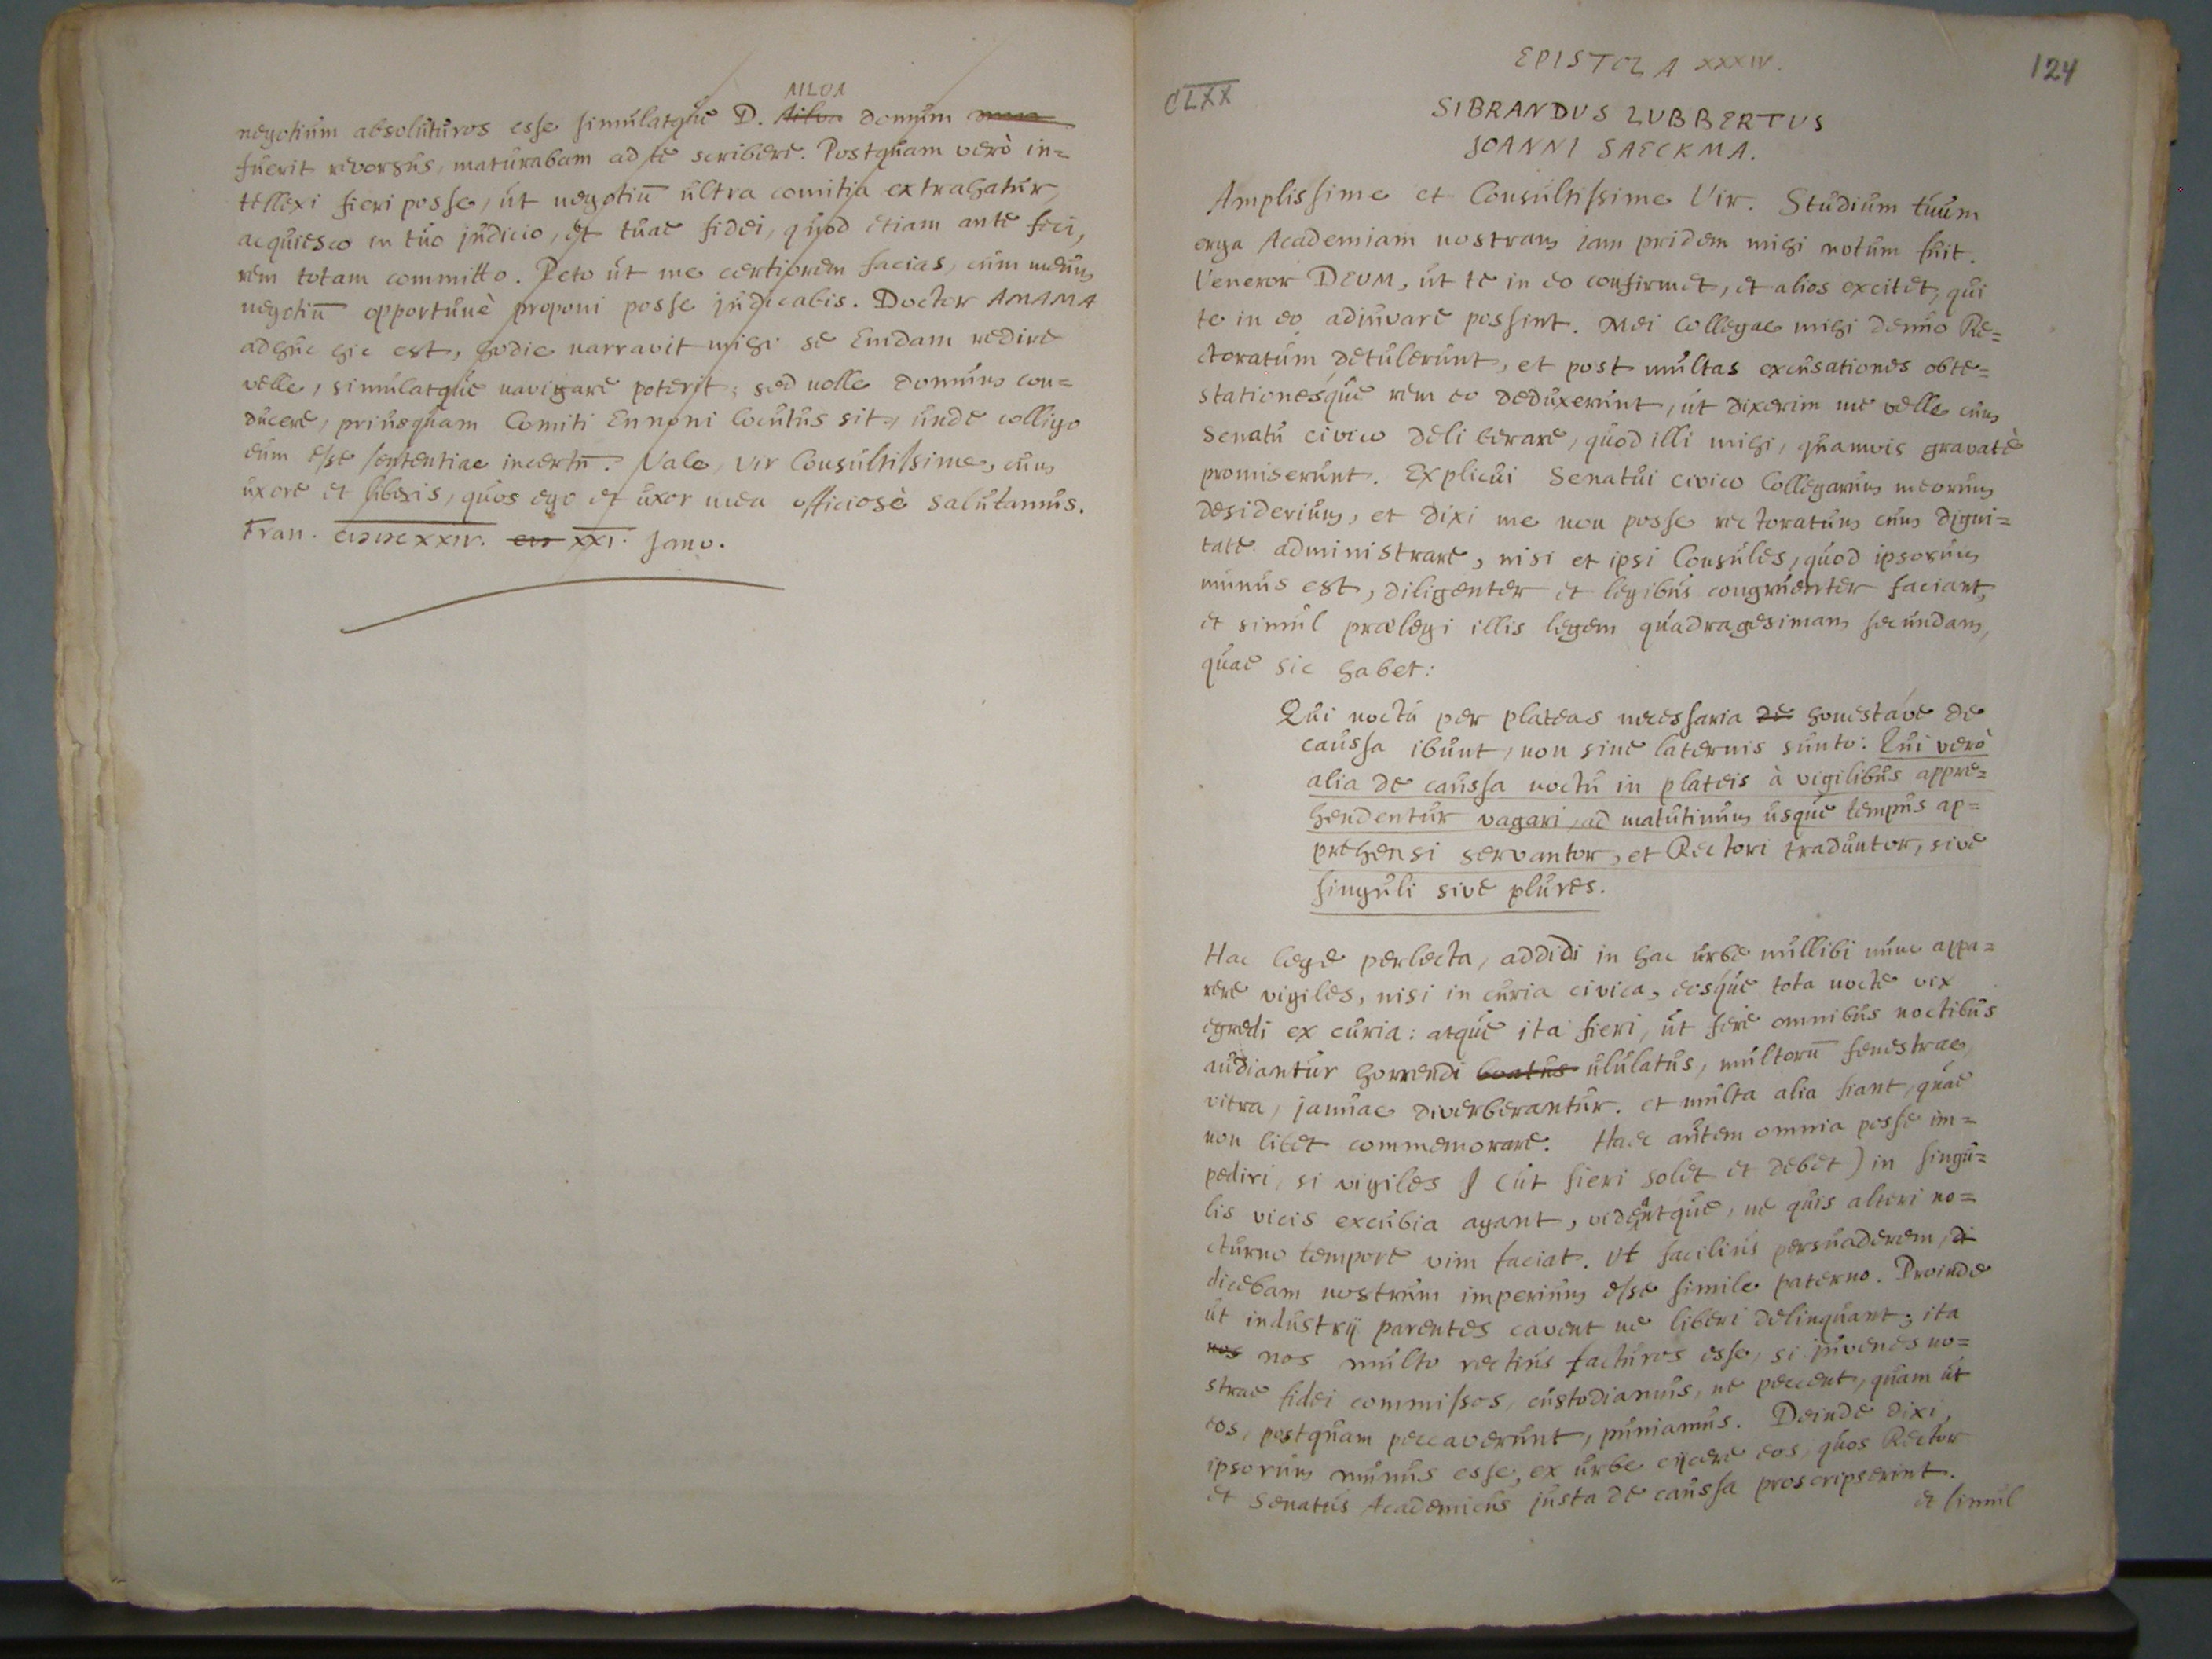 AILOA
negotium absoluturos esse simulatque D. domum
fuerit reversus, maturabam ad te scribere. Postquam verò in=
tellexi fieri posse, ut negotiū ultra comitia extrahatur,
acquiesco in tuo judicio, et tuae fidei, quod etiam ante feci,
rem totam committo. Peto ut me certiorem facias, cum meum
negotiū opportunè proponi posse judicabis. Doctor AMAMA
adhuc hic est, hodie narravit mihi se Emdam redire
velle, simulatque navigare poterit; sed nolle domum con=
ducere, priusquam Comiti Ennoni locutus sit, unde colligo
eum esse sententiae incertū. Vale, vir Consultissime, cum
uxore et liberis, quos ego et uxor mea officiosè salutamus.
Fran. CIƆIƆCXXIV. XXI. Janv.
EPISTOLA XXXIV.
124
CLXX
SIBRANDUS LUBBERTUS
JOANNI SAECKMA.
Amplissime et Consultissime Vir. Studium tuum
erga Academiam nostram jam pridem mihi notum fuit.
Veneror DEUM, ut te in eo confirmet, et alios excitet, qui
te in eo adjuvare possint. Mei Collegae mihi denuo Re=
ctoratum detulerunt, et post multas excusationes obte=
stationesque rem eo deduxerunt, ut dixerim me velle cum
Senatu civico deliberare, quod illi mihi, quamvis gravatè
promiserunt. Explicui Senatui civico Collegarum meorum
desiderium, et dixi me non posse rectoratum cum digni=
tate administrare, nisi et ipsi Consules, quod ipsorum
munus est, diligenter et legibus congruenter faciant,
et simul praelegi illis legem quadragesimam secundam,
quae sic habet:
Qui noctu per plateas necessaria de honestave de
caussa ibunt, non sine laternis sunto: Qui verò
alia de caussa noctu in plateis à vigilibus appre=
hendentur vagari, ad matutinum usque tempus ap=
prehensi servantor, et Rectori traduntor, sive
singuli sive plures.
Hac lege perlecta, addidi in hac urbe nullibi nunc appa=
rere vigiles, nisi in curia civica, eosque tota nocte vix
egredi ex curia: atque ita fieri, ut fere omnibus noctibus
audiantur horrendi boatus ululatus, multorū fenestrae,
vitra, januae diverberantur. et multa alia fiant, quae
non libet commemorare. Haec autem omnia posse im=
pediri, si vigiles (ut fieri solet et debet) in singu=
lis vicis excubia agant, videantque, ne quis alteri no=
cturno tempore vim faciat. Ut facilius persuaderem, di
dicebam nostrum imperium esse simile paterno. Proinde
ut industrij parentes cavent ne liberi delinquant; ita
nos nos multo rectius facturos esse, si juvenes no=
strae fidei commissos, custodiamus, ne peccent, quam ut
eos, postquam peccaverunt, puniamus. Deinde dixi,
ipsorum munus esse, ex urbe eijcere eos, quos Rector
et Senatus Academicus justa de caussa proscripserint.
et simul